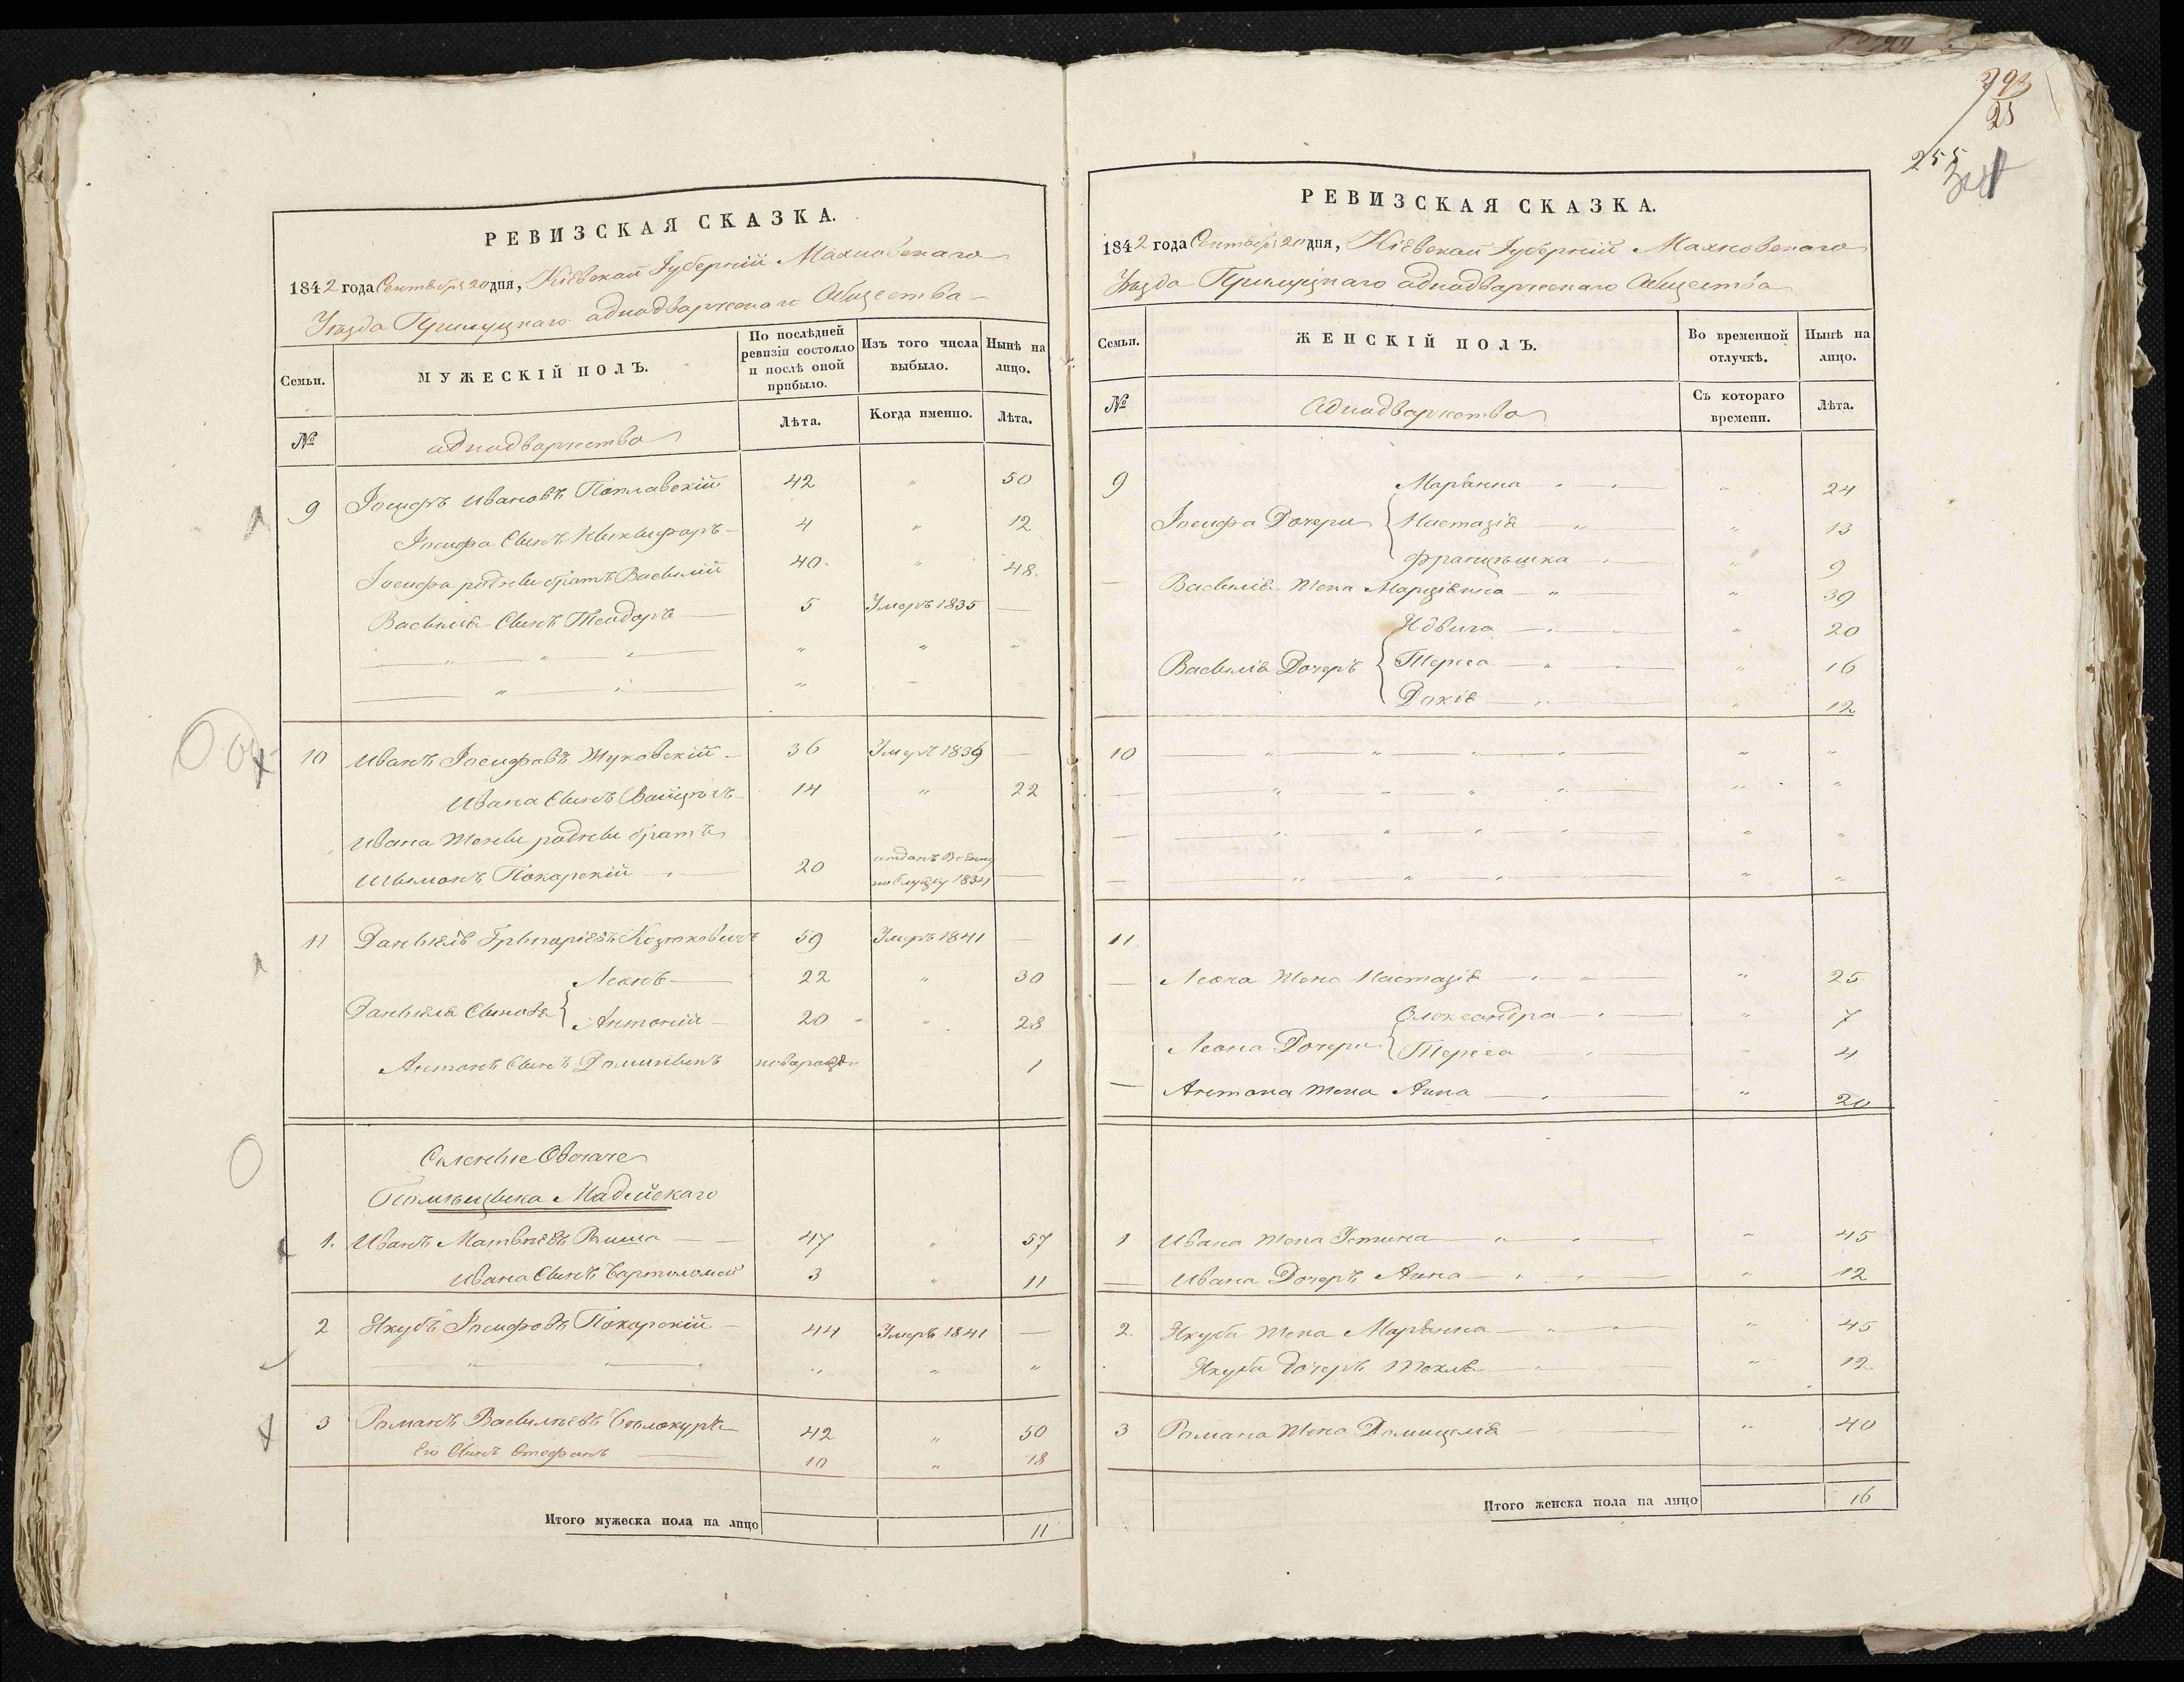 РЕВИЗСКАЯ СКАЗКА.
1842 года Сентября 20 дня, Кіевской Губерніи Махновскаго
Уезда Прилуцкаго однодворческаго Общества
Семьи.
МУЖЕСКІЙ ПОЛЪ.
По послѣдней ревизіи состояло и послѣ оной прибыло.
Изъ того числа выбыло.
Нынѣ на лицо.
№
однодворцевъ
Лѣта.
Когда именно.
Лѣта.
9 Іосифъ Ивановъ 42 " 50
Іосифа Сынъ Никифоръ 4 " 12
Іосифа родны братъ Василій 40 " 48.
Василія Сынъ Теодоръ 5 Умеръ 1835 —
10 Иванъ Іосифовъ Жуковскій 36 Умеръ 1839 —
Ивана Сынъ Войцехъ 14 " 22
Ивана Жены родны братъ
Шымонъ Пожарскій 20 отданъ 1834 —
11 Даныелъ 59 Умеръ 1841 —
Леонъ 22 " 30
Даныела Сынове { Антоній 20 " 28
Антона Сынъ Доминыкъ новорожд. 1
Селеные
Помѣщыка Мадейскаго
1. Иванъ Матвѣевъ 47 " 57
Ивана Сынъ Бартоломей 3 " 11
2 Якубъ Іосифовъ Пожарскій 44 Умеръ 1841 —
3 Романъ Васильевъ Бѣлокуръ 42 " 50
Его Сынъ Стефанъ 10 " 18
Итого мужеска пола на лицо 11
293
25
255
РЕВИЗСКАЯ СКАЗКА.
1842 года Сентября 20 дня, Кіевской Губерніи Махновскаго
Уезда Прилуцкаго однодворческаго Общества
Семьи.
ЖЕНСКІЙ ПОЛЪ.
Во временной отлучкѣ.
Нынѣ на лицо.
№
Съ котораго времени.
Лѣта.
9 Марянна " 24
Іосифа Дочери { Настазія " 13
Францѣшка " 9
Василія Жена Марціянна " 39
Ядвига " 20
Василія Дочеръ { Тереса " 16
Докія " 12
10
11
Леона Жена Настазія " 25
Олександра " 7
Леона Дочери { Тереса " 4
Антона Жена Анна " 20
1 Ивана Жена Устина " 45
Ивана Дочеръ Анна " 12
2. Якуба Жена Марянна " 45
Якуба Дочеръ Текля " 12
3 Романа Жена Домицеля " 40
Итого женска пола на лицо 16